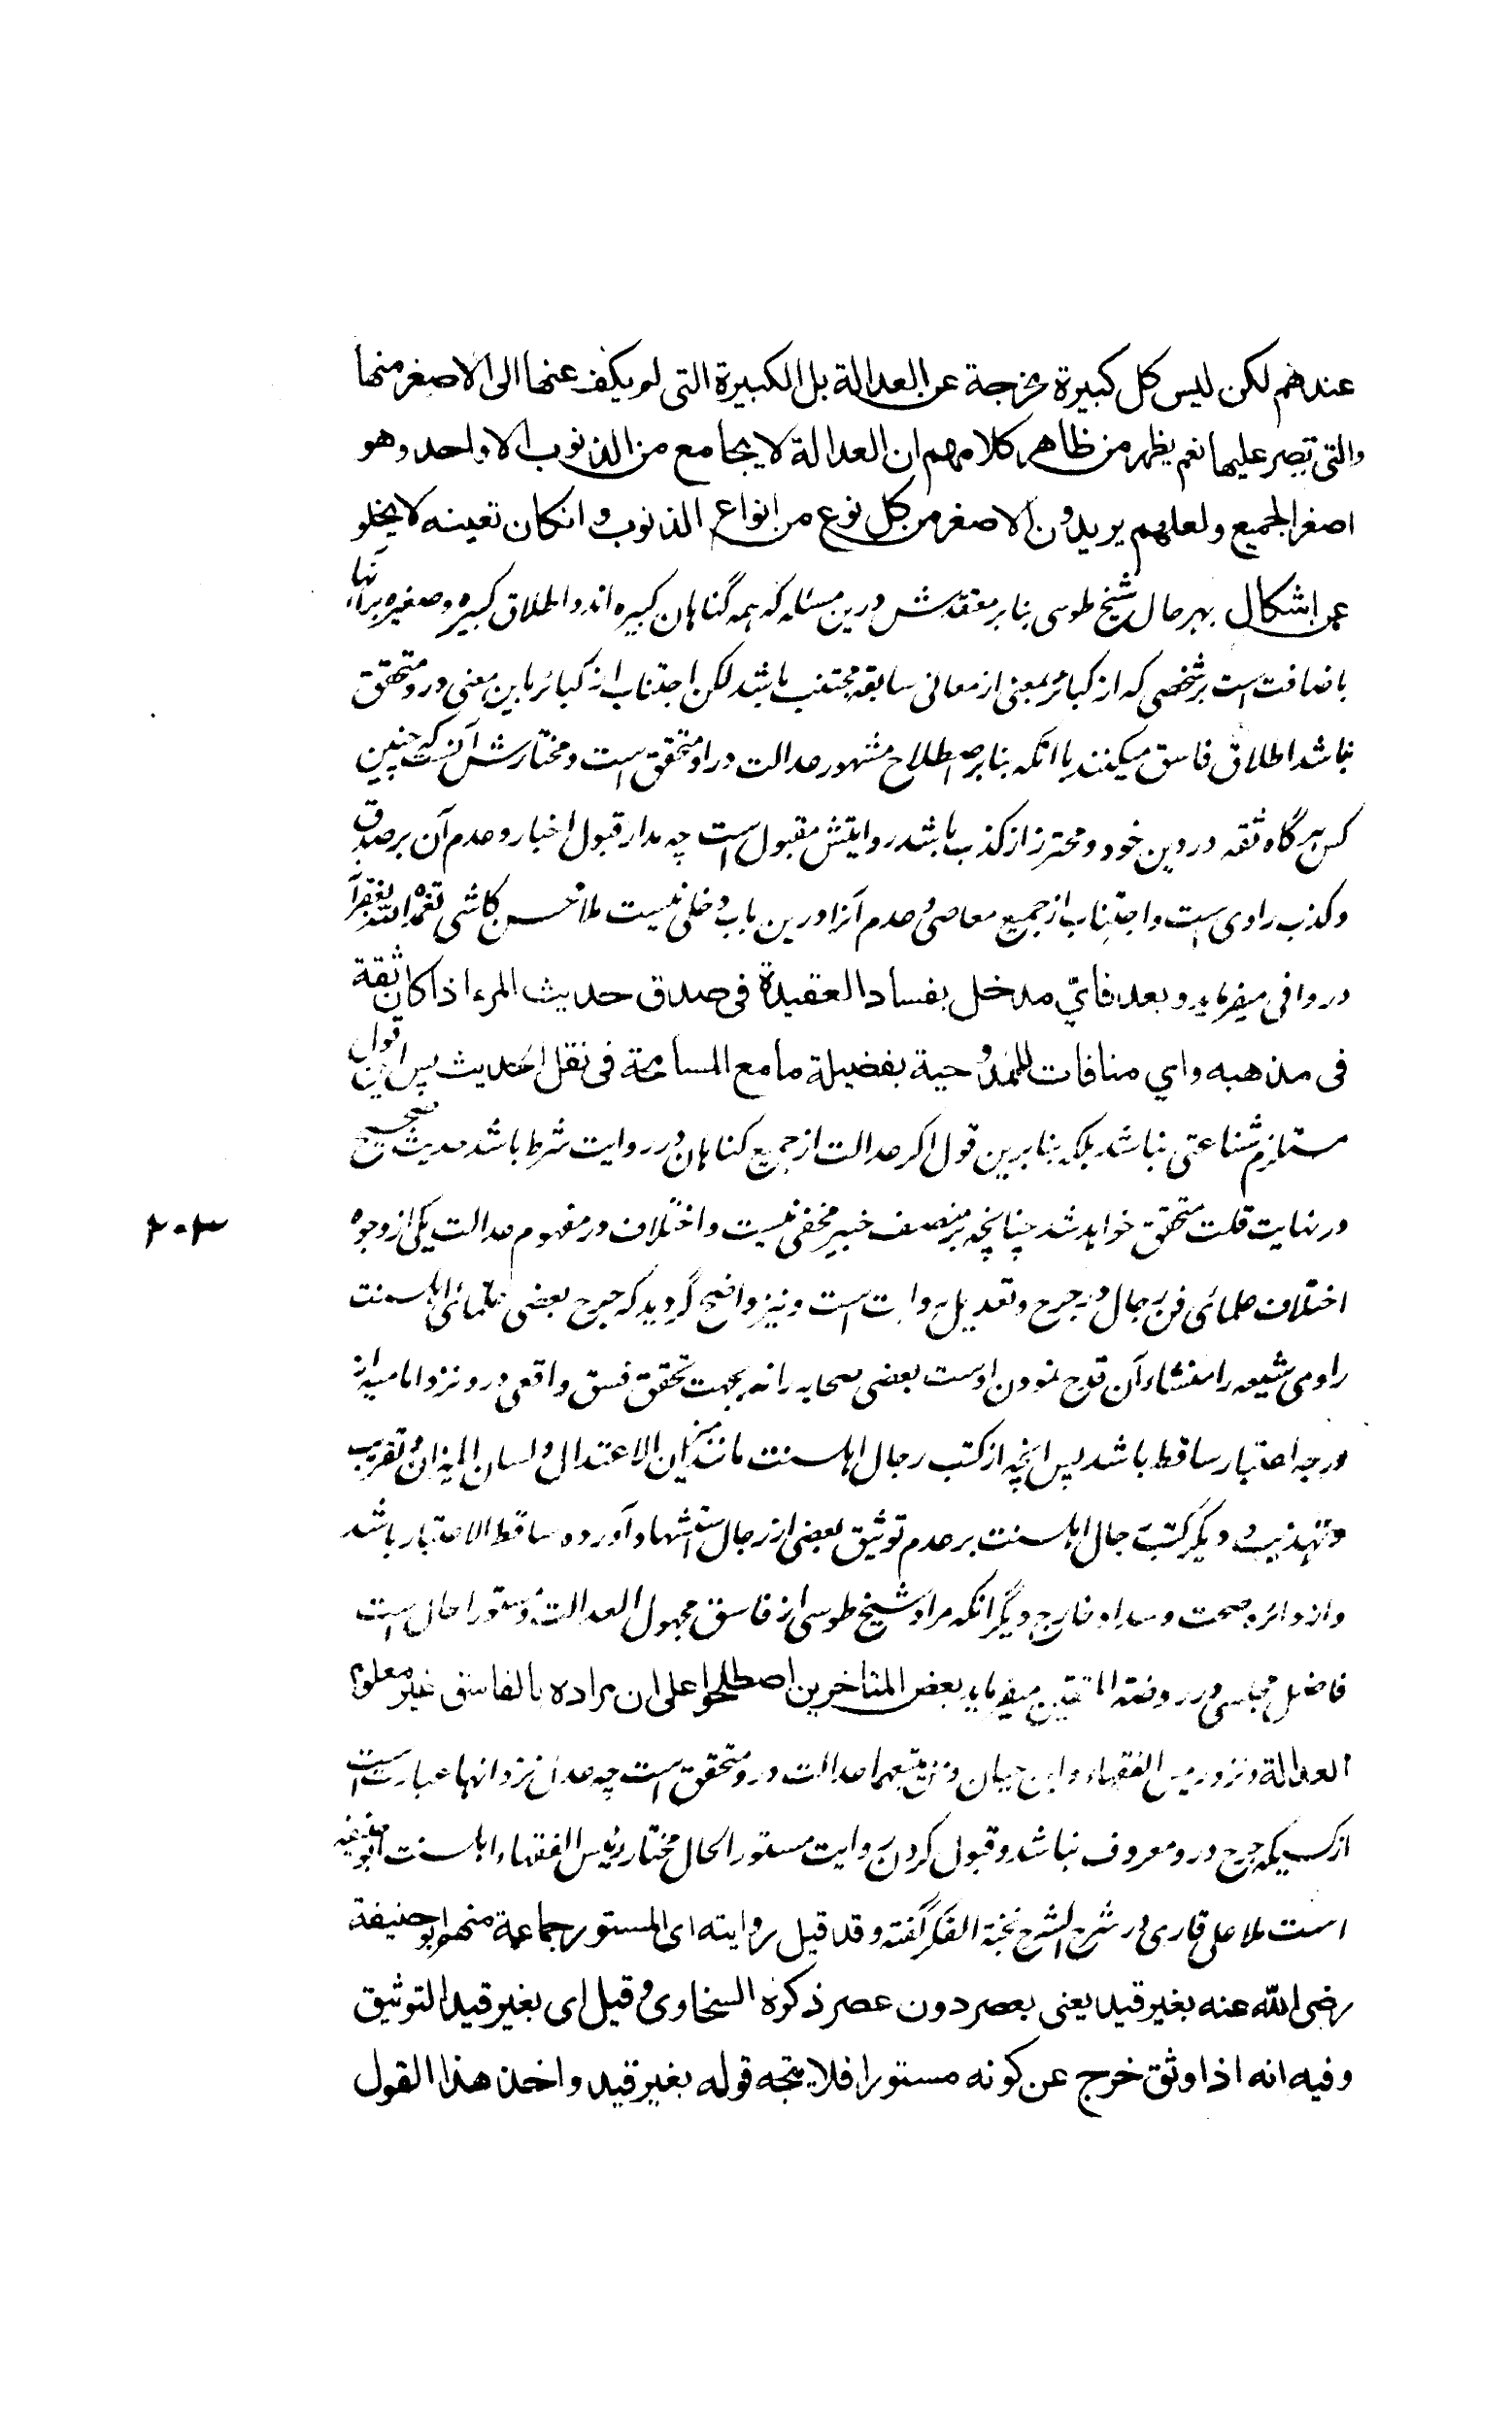 عندهم لكن ليس كل كبيرة مخرجة عن العدالة بل الكبيرة التى لو يكف عنها الى الاصغر منها
والتى تصر عليها نعم يظهر من ظاهر كلامهم ان العدالة لا يجامع من الذنوب الا واحد وهو
اصغر الجميع ولعلهم يريدون الاصغر من كل نوع من انواع الذنوب وانكان تعينه لا يخلو
عن اشكال بهر حال شیخ طوسی بنا بر معتقدش درین مسئله که همه گناهان کبیره اند و اطلاق کبیره وصغیره بر آنها
باضافت است بر شخصی که از کبائر بمعنی از معانی سابقه مجتنب باشد لکن اجتناب از کبائر باین معنی در و متحقق
نباشد اطلاق فاسق میکنند با آنکه بنابر اصطلاح مشهور عدالت در او متحقق است و مختارش آنست که چنین
کس هر گاه ثقه در دین خود و محترز از کذب باشد روایتش مقبول است چه مدار قبول اخبار و عدم آن بر صدق
و کذب راوی است و اجتناب از جمیع معاصی و عدم آنرا درین باب دخلی نیست ملا محسن کاشی
در وافی میفرماید و بعد فاىّ مدخل بفساد العقيدة فى صدق حديث المرء اذا كان ثقة
فى مذهبه واى منافات للممدوحية بفضيلة ما مع المسامحة فى نقل الحديث پس این قول
مستلزم شناعتی نباشد بلکه بنابرین قول اگر عدالت از جمیع گناهان در روایت شرط باشد حدیث صحیح
در نهایت قلت متحقق خواهد شد چنانچه بر منصف خبیر مخفی نیست و اختلاف در مفهوم عدالت یکی از وجوه
۲۰۳
اختلاف علمائی فن رجال در جرح و تعدیل رواة است و نیز واضح گردید که جرح بعضی علمائی اهلسنت
راوی شیعه را منشاء آن قدح نمودن اوست بعضی صحابه را نه بجهت تحقق فسق واقعی در و نزد امامیه از
درجه اعتبار ساقط باشد پس آنچه از کتب رجال اهلسنت مانند میزان الاعتدال و لسان المیزان و تقریب
و تهذیب و دیگر کتب رجال اهلسنت بر عدم توثیق بعضی از رجال استشهاد آورده ساقط الاعتبار باشد
و از دائره صحت و سداد خارج دیگر آنکه مراد شیخ طوسی از فاسق مجهول العدالت و مستور الحال است
فاضل مجلسی در روضة المتقین میفرماید بعض المتاخرين اصطلحوا على ان مراده بالفاسق غير معلوم
العدالة و نزد رئیس الفقهاء و ابن حبان و من تبعهما عدالت در و متحقق است چه عدل نزد آنها عبارت است
از کسیکه جرح در و معروف نباشد و قبول کردن روایت مستور الحال مختار رئیس الفقهاء اهلسنت ابو حنیفه
است ملا علی قاری در شرح الشرح نخبة الفکر گفته وقد قيل روايته اى المستور جماعة منهم ابو حنيفة
رضى الله عنه بغير قيد يعنى بعصر دون عصر ذكره السخاوى وقيل اى بغير قيد التوثيق
وفيه انه اذا وثق خرج عن كونه مستورا فلا يتجه قوله بغير قيد واخذ هذا القول